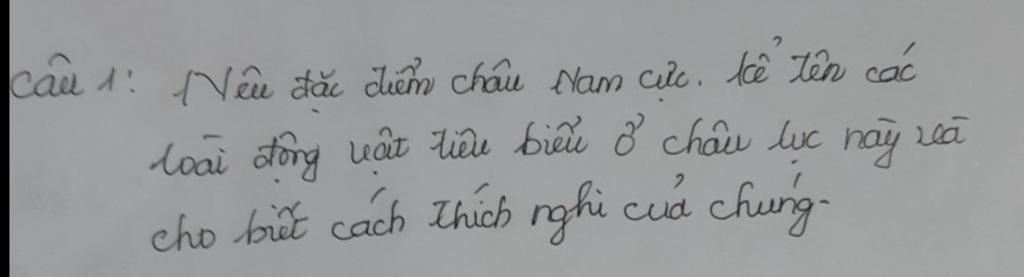 Câu 1: Nêu đặc điểm châu Nam cực. kể tên các
loài động vật tiêu biểu ở châu lục này và
cho biết cách thích nghi của chúng.